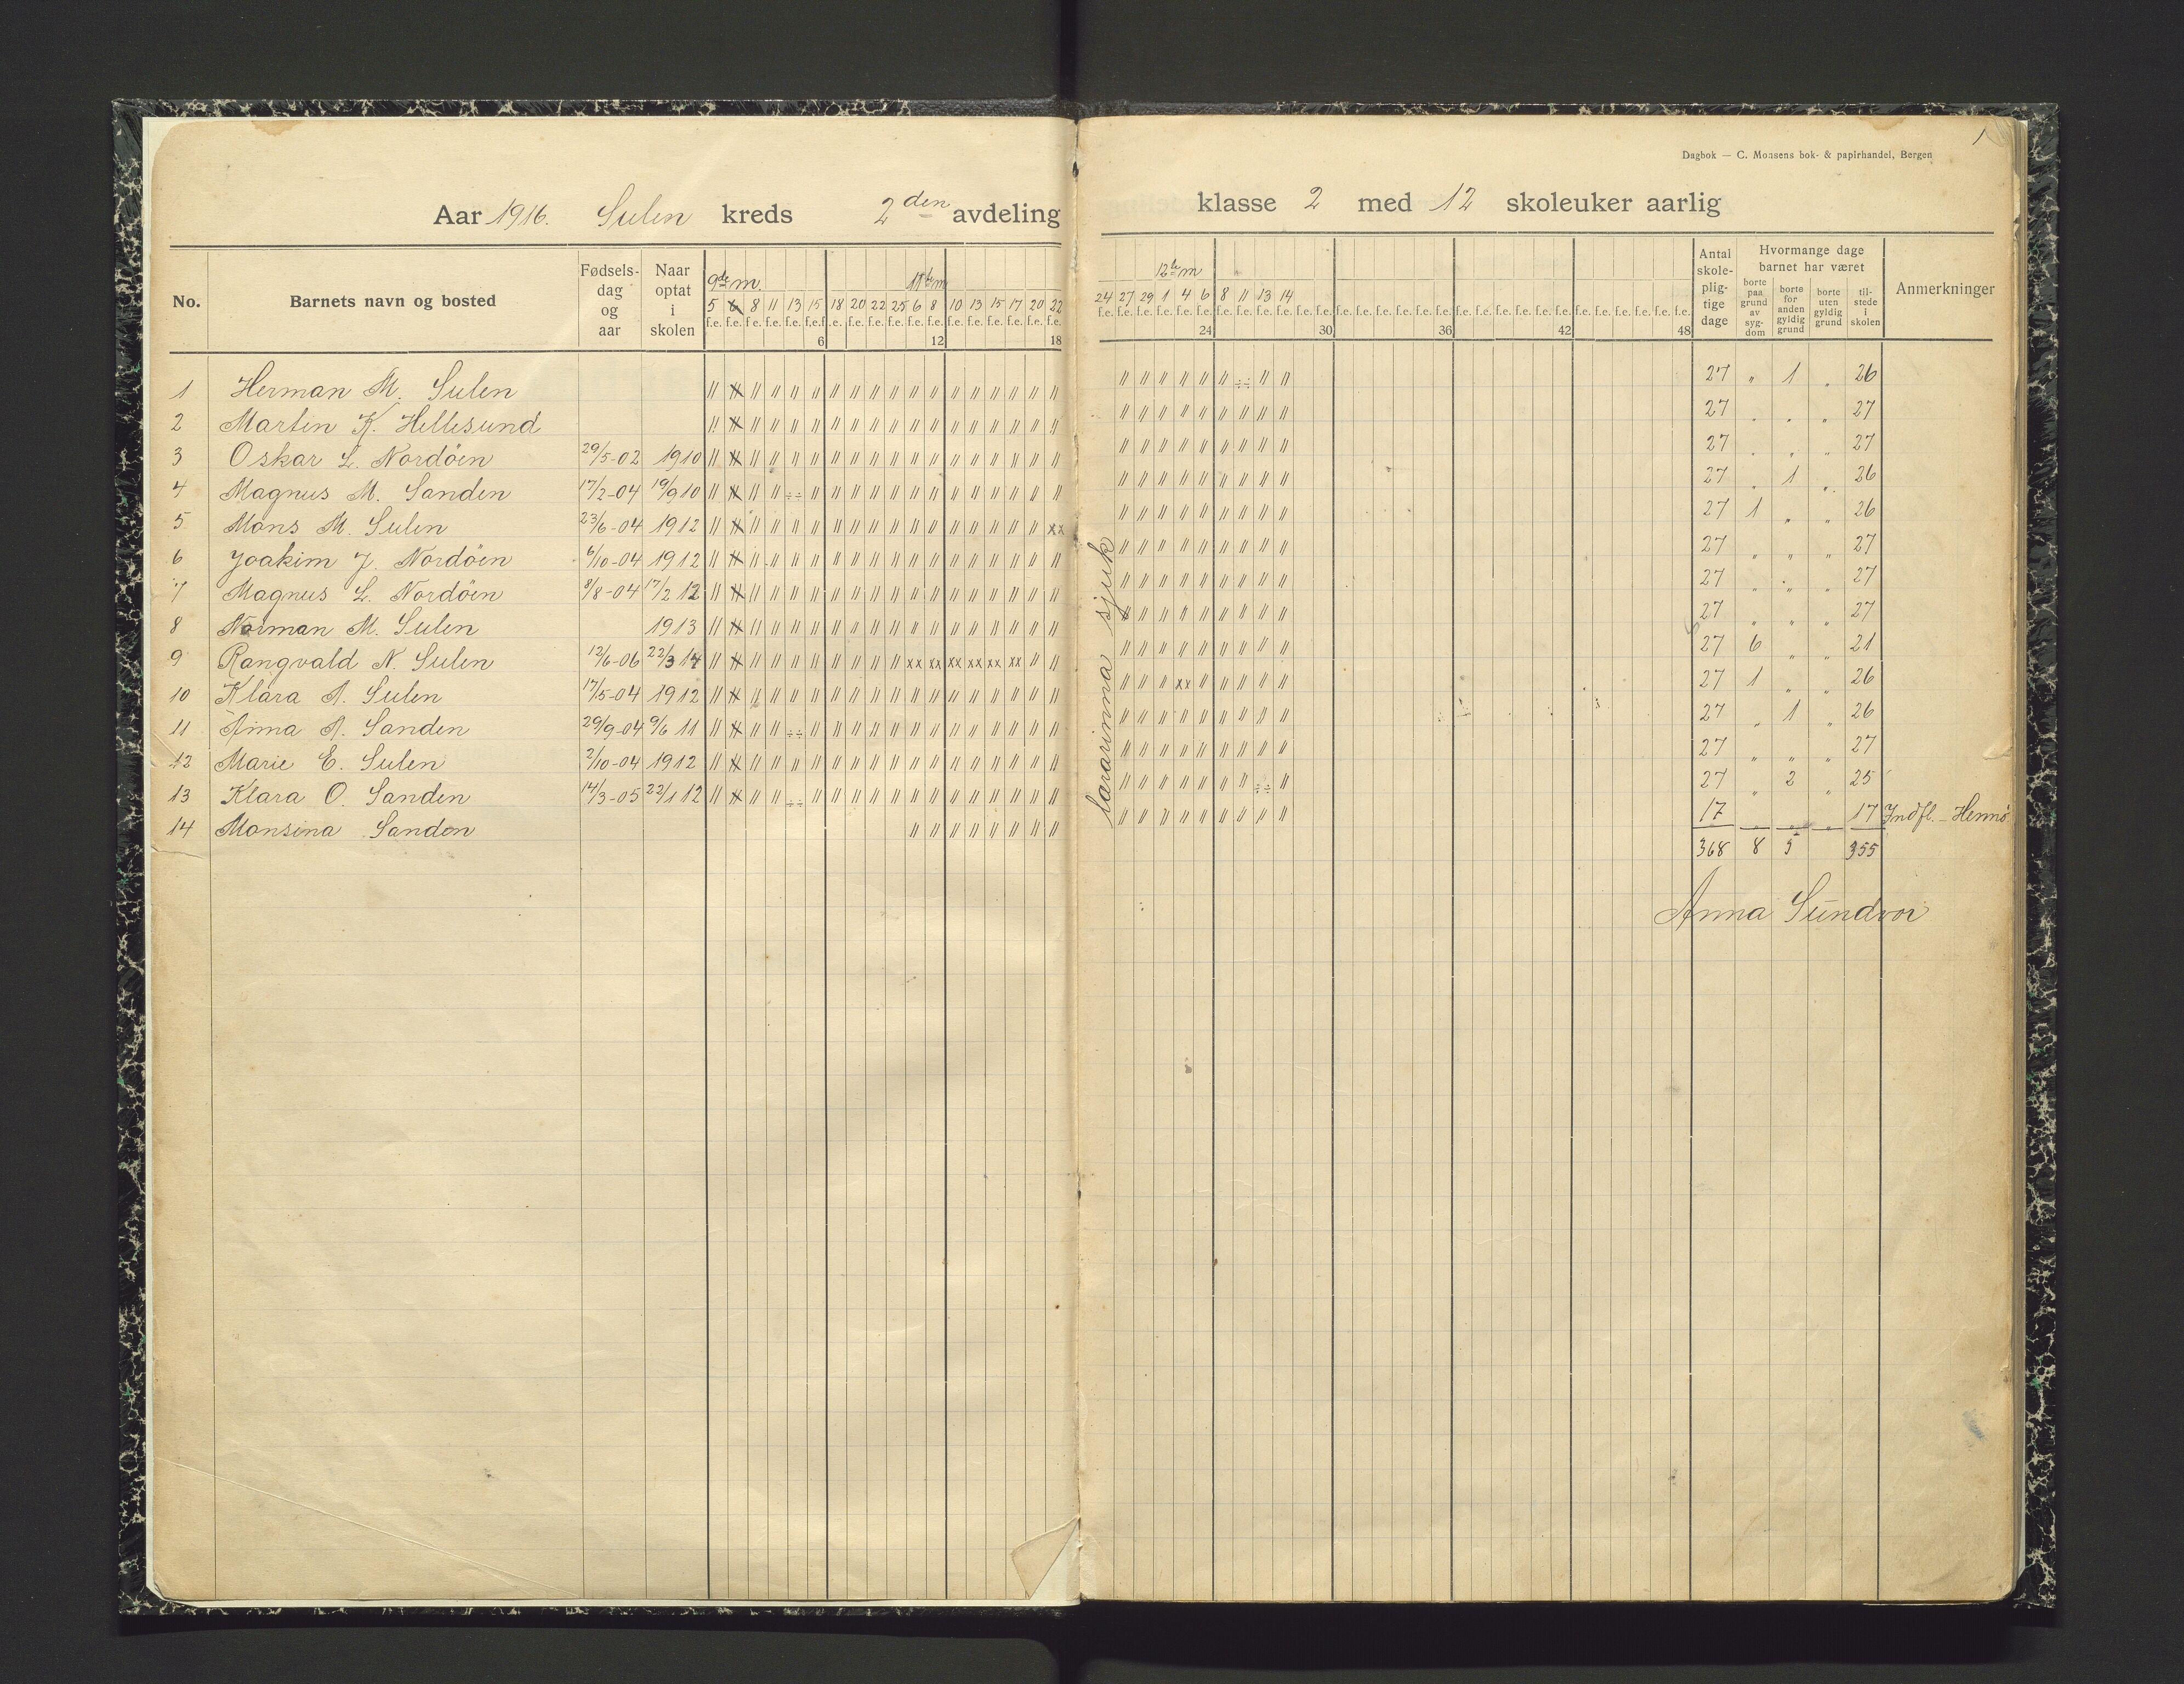 1
Dagbok — C. Monsens bok- & papirhandel, Bergen
Aar 1916. Sulen kreds 2den avdeling klasse 2 med 12 skoleuker aarlig
No. Barnets navn og bosted Fødsels-dag og aar Naar optat i skolen
9de m. 11te m 12te m
5 6 8 11 13 15 18 20 22 25 6 8 10 13 15 17 20 22 24 27 29 1 4 6 8 11 13 14
6 12 18 24 30 36 42 48
Antal skole-plig-tige dage
Hvormange dage barnet har været
borte paa grund av syg-dom borte for anden gyldig grund borte uten gyldig grund til-stede i skolen
Anmerkninger
1 Herman M. Sulen 27 " 1 " 26
2 Martin K. Hellesund 27 " " " 27
3 Oskar L. Nordöen 29/5-02 1910 27 " " " 27
4 Magnus M. Sanden 17/2-04 19/9 10 27 " 1 " 26
5 Mons M. Sulen 23/6-04 1912 xx 27 1 " " 26
6 Joakim J. Nordöen 6/10-04 1912 27 " " " 27
7 Magnus L. Nordöen 8/8-04 17/2 12 27 " " " 27
8 Norman M. Sulen 1913 27 " " " 27
9 Rangvald N. Sulen 12/6-06 22/3 14 xx xx xx xx xx xx 27 6 " " 21
10 Klara A. Sulen 17/5-04 1912 xx 27 1 " " 26
11 Anna A. Sanden 29/9-04 9/6 11 27 " 1 " 26
12 Marie E. Sulen 2/10-04 1912 27 " " " 27
13 Klara O. Sanden 14/3-05 22/1 12 27 " 2 " 25
14 Monsina Sanden 17 " " " 17 Indfl. - Hennö
368 8 5 355
lærarinna sjuk
Anna Sundvor